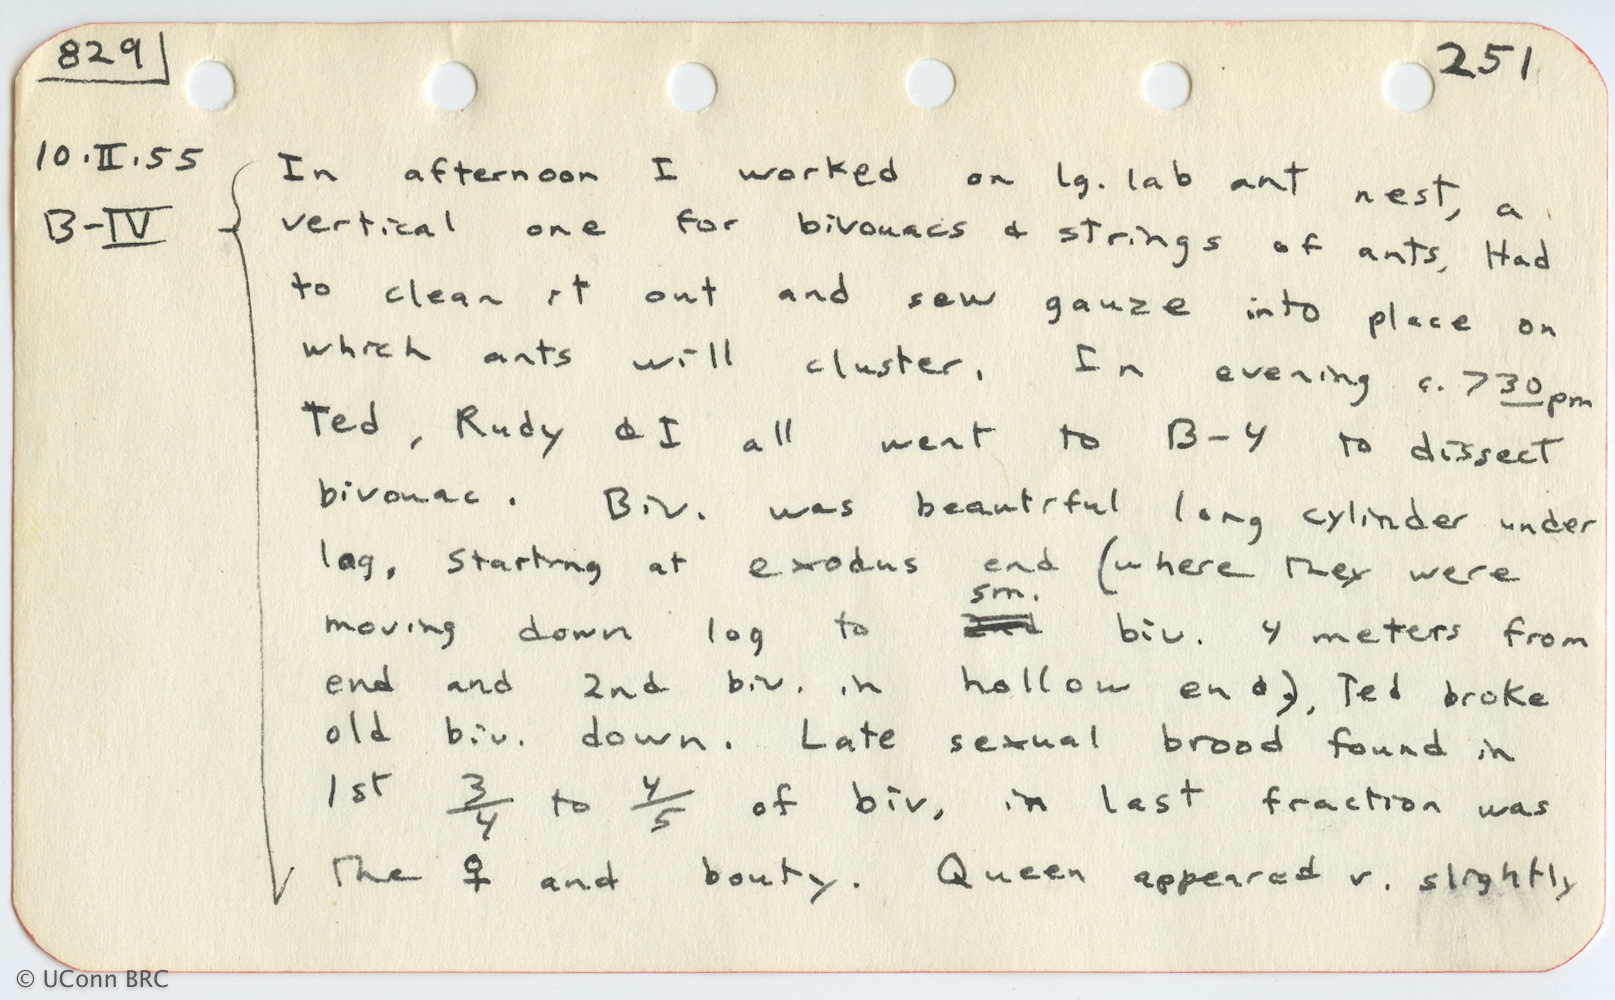 829
251
10.II.55
B-IV
In afternoon I worked on lg. lab ant nest, a
vertical one for bivouacs & strings of ants. Had
to clean it out and sew gauze into place on
which ants will cluster. In evening c. 730pm
Ted, Rudy & I all went to B-4 to dissect
bivouac. Biv. was beautiful long cylinder under
log, starting at exodus end (where they were
sm.
moving down log to biv. 4 meters from
end and 2nd biv. in hollow end), Ted broke
old biv. down. Late sexual brood found in
1st 3/4 to 4/5 of biv, in last fraction was
the ♀ and bouty. Queen appeared v. slightly
© UConn BRC